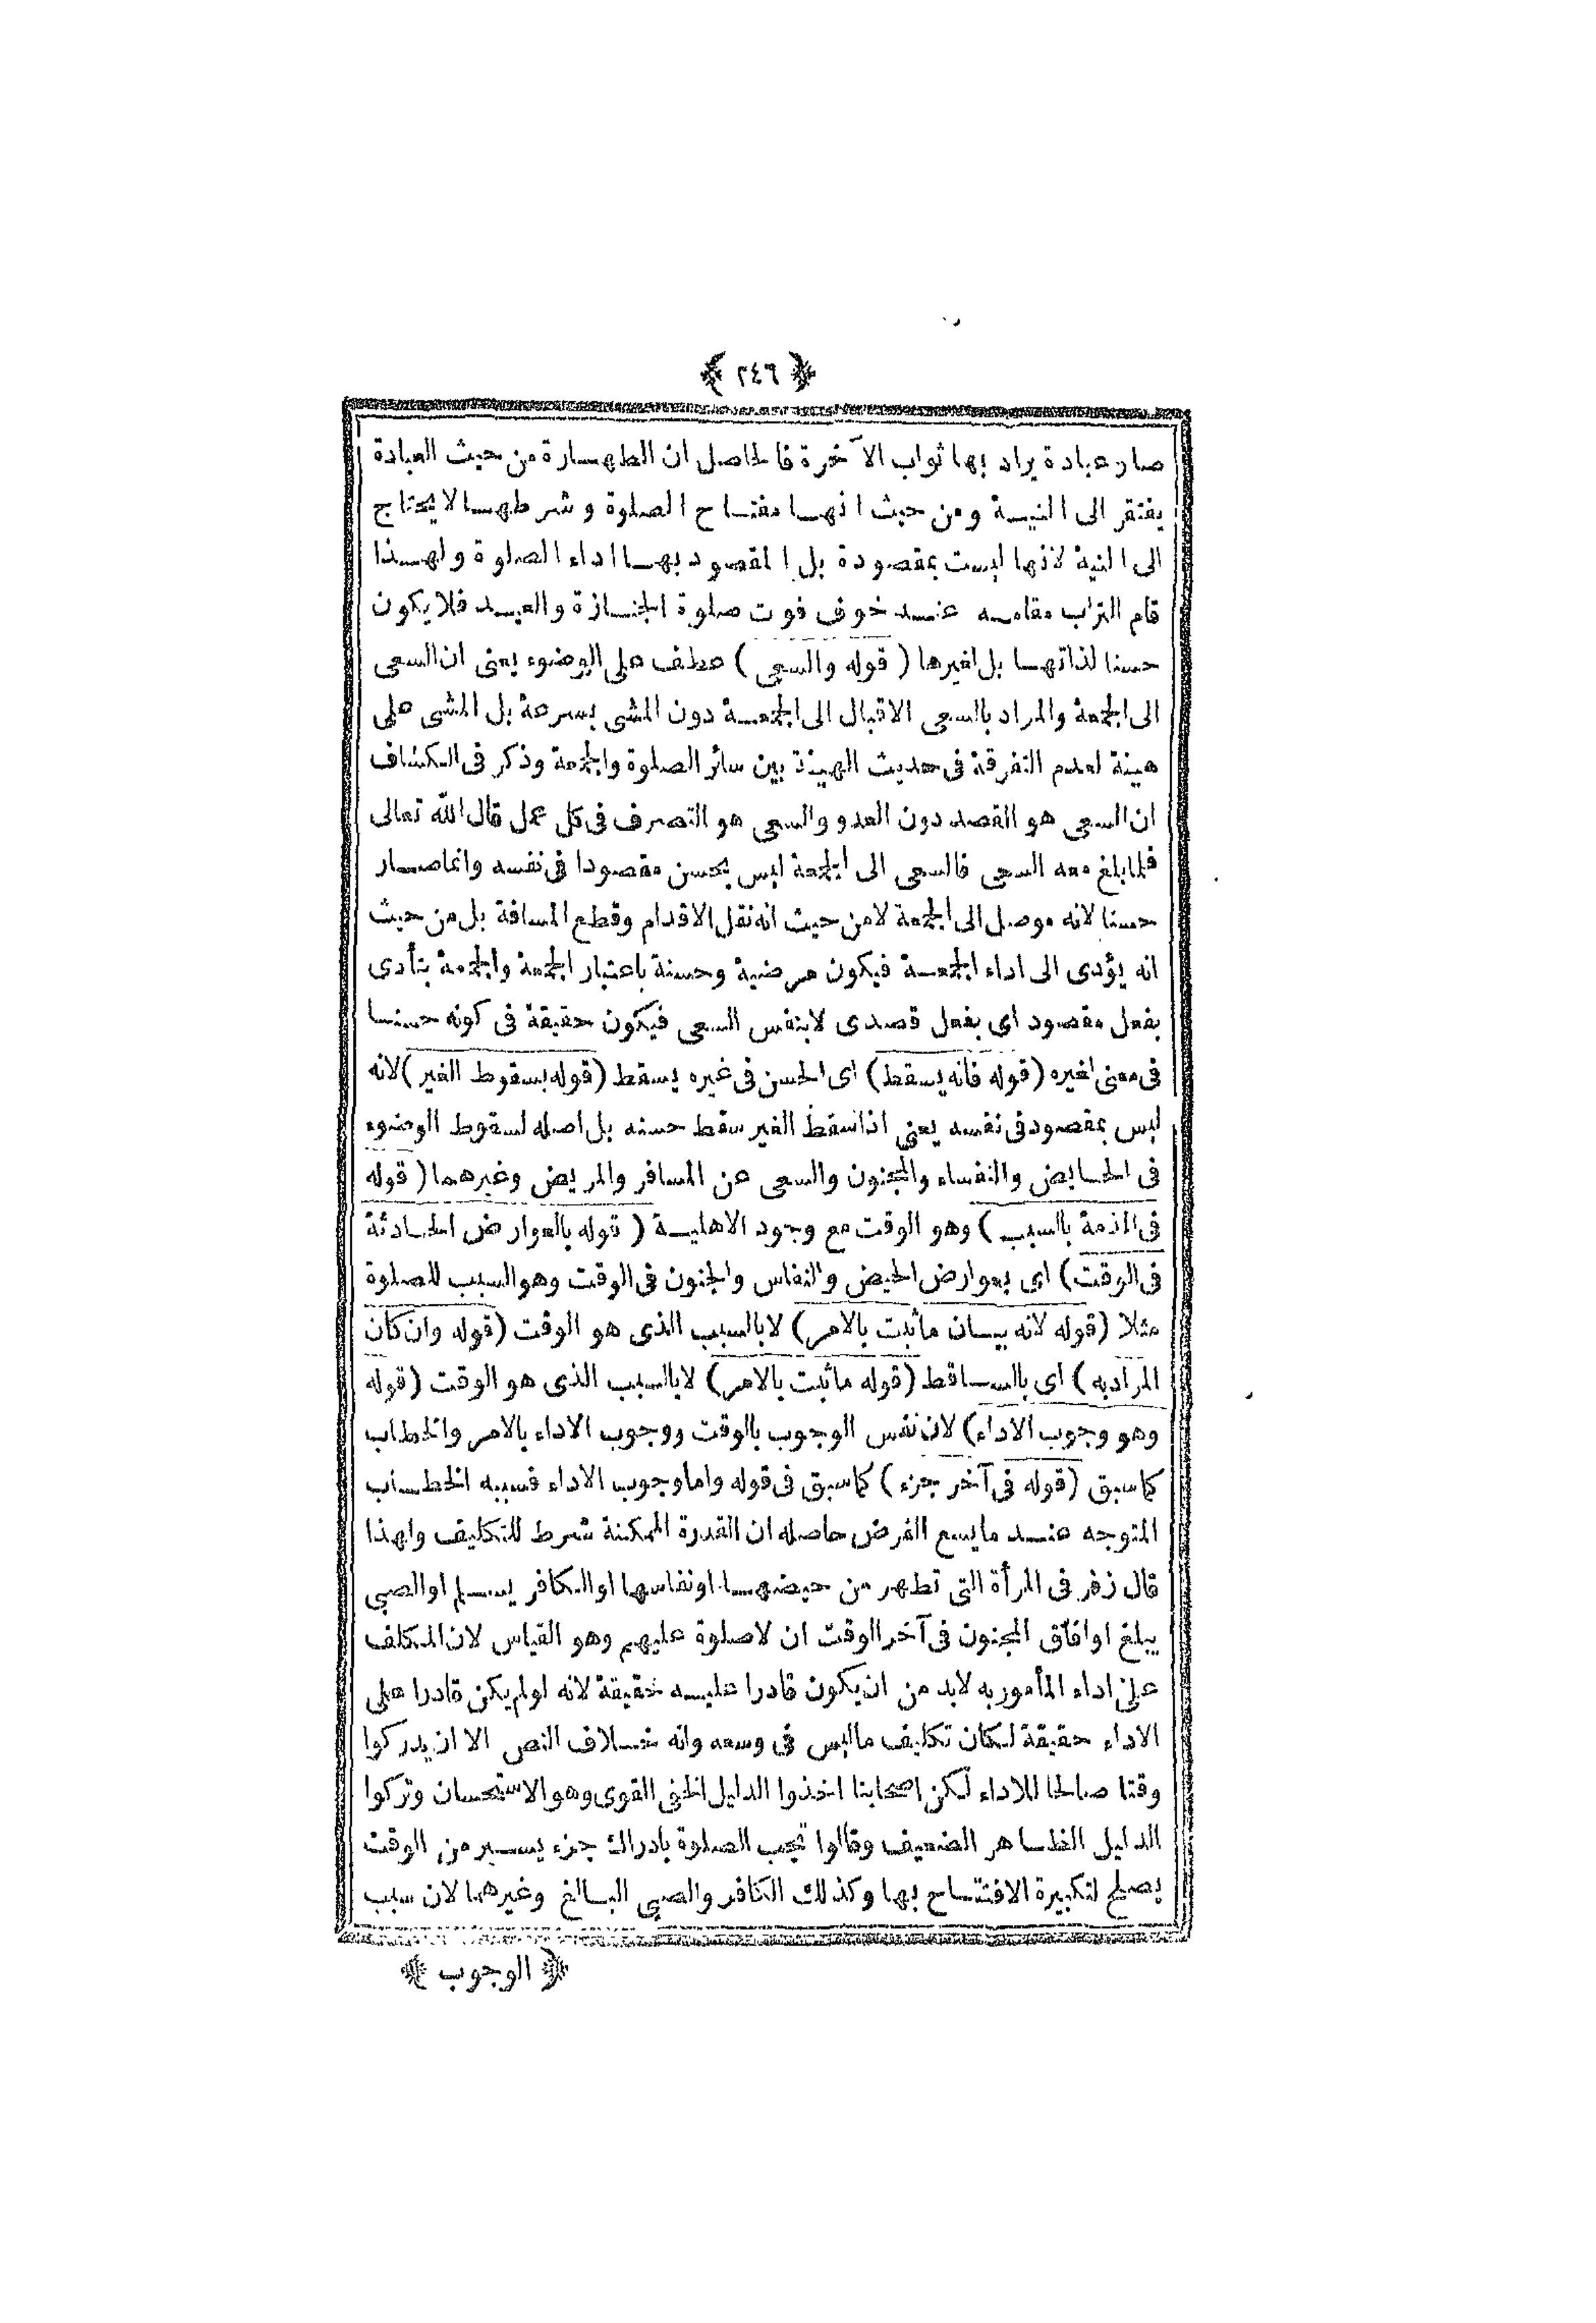 ﴿ ٢٤٦ ﴾
صار عبادة يراد بها ثواب الآخرة فالحاصل ان الطهارة من حيث العبادة
يفتقر الى النية ومن حيث انها مفتاح الصلوة وشرطها لا يحتاج
الى النية لانها ليست بمقصودة بل المقصود بها اداء الصلوة ولهذا
قام التراب مقامه عند خوف فوت صلوة الجنازة والعيد فلا يكون
حسنا لذاتها بل لغيرها ( قوله والسعى ) عطف على الوضوء يعنى ان السعى
الى الجمعة والمراد بالسعى الاقبال الى الجمعة دون المشى بسرعة بل المشى على
هينة لعدم التفرقة فى حديث الهينة بين سائر الصلوة والجمعة وذكر فى الكشاف
ان السعى هو القصد دون العدو والسعى هو التصرف فى كل عمل قال الله تعالى
فلما بلغ معه السعى فالسعى الى الجمعة ليس بحسن مقصودا فى نفسه وانما صار
حسنا لانه موصل الى الجمعة لا من حيث انه نقل الاقدام وقطع المسافة بل من حيث
انه يؤدى الى اداء الجمعة فيكون مرضية وحسنة باعتبار الجمعة والجمعة يتأدى
بفعل مقصود اى بفعل قصدى لا بنفس السعى فيكون حقيقة فى كونه حسنا
فى معنى لغيره (قوله فانه يسقط) اى الحسن فى غيره يسقط (قوله بسقوط الغير) لانه
ليس بمقصود فى نفسه يعنى اذا سقط الغير سقط حسنه بل اصله لسقوط الوضوء
فى الحايض والنفساء والمجنون والسعى عن المسافر والمريض وغيرهما ( قوله
فى الذمة بالسبب ) وهو الوقت مع وجود الاهلية ( قوله بالعوارض الحادثة
فى الوقت) اى بعوارض الحيض والنفاس والجنون فى الوقت وهو السبب للصلوة
مثلا (قوله لانه بيان ما ثبت بالامر) لا بالسبب الذى هو الوقت (قوله وان كان
المراد به ) اى بالساقط (قوله ما ثبت بالامر) لا بالسبب الذى هو الوقت (قوله
وهو وجوب الاداء) لان نفس الوجوب بالوقت ووجوب الاداء بالامر والخطاب
كما سبق (قوله فى آخر جزء ) كما سبق فى قوله واما وجوب الاداء فسببه الخطاب
المتوجه عند ما يسع الفرض حاصله ان القدرة الممكنة شرط للتكليف ولهذا
قال زفر فى المرأة التى تطهر من حيضها او نفاسها او الكافر يسلم او الصبى
يبلغ او افاق المجنون فى آخر الوقت ان لا صلوة عليهم وهو القياس لان المكلف
على اداء المأمور به لابد من ان يكون قادرا عليه حقيقة لانه لو لم يكن قادرا على
الاداء حقيقة لكان تكليف ما ليس فى وسعه وانه خلاف النص الا ان يدركوا
وقتا صالحا للاداء لكن اصحابنا اخذوا الدليل الخفى القوى وهو الاستحسان وتركوا
الدليل الظاهر الضعيف وقالوا تجب الصلوة بادراك جزء يسير من الوقت
يصلح لتكبيرة الافتتاح بها وكذلك الكافر والصبى البالغ وغيرهما لان سبب
﴿ الوجوب ﴾